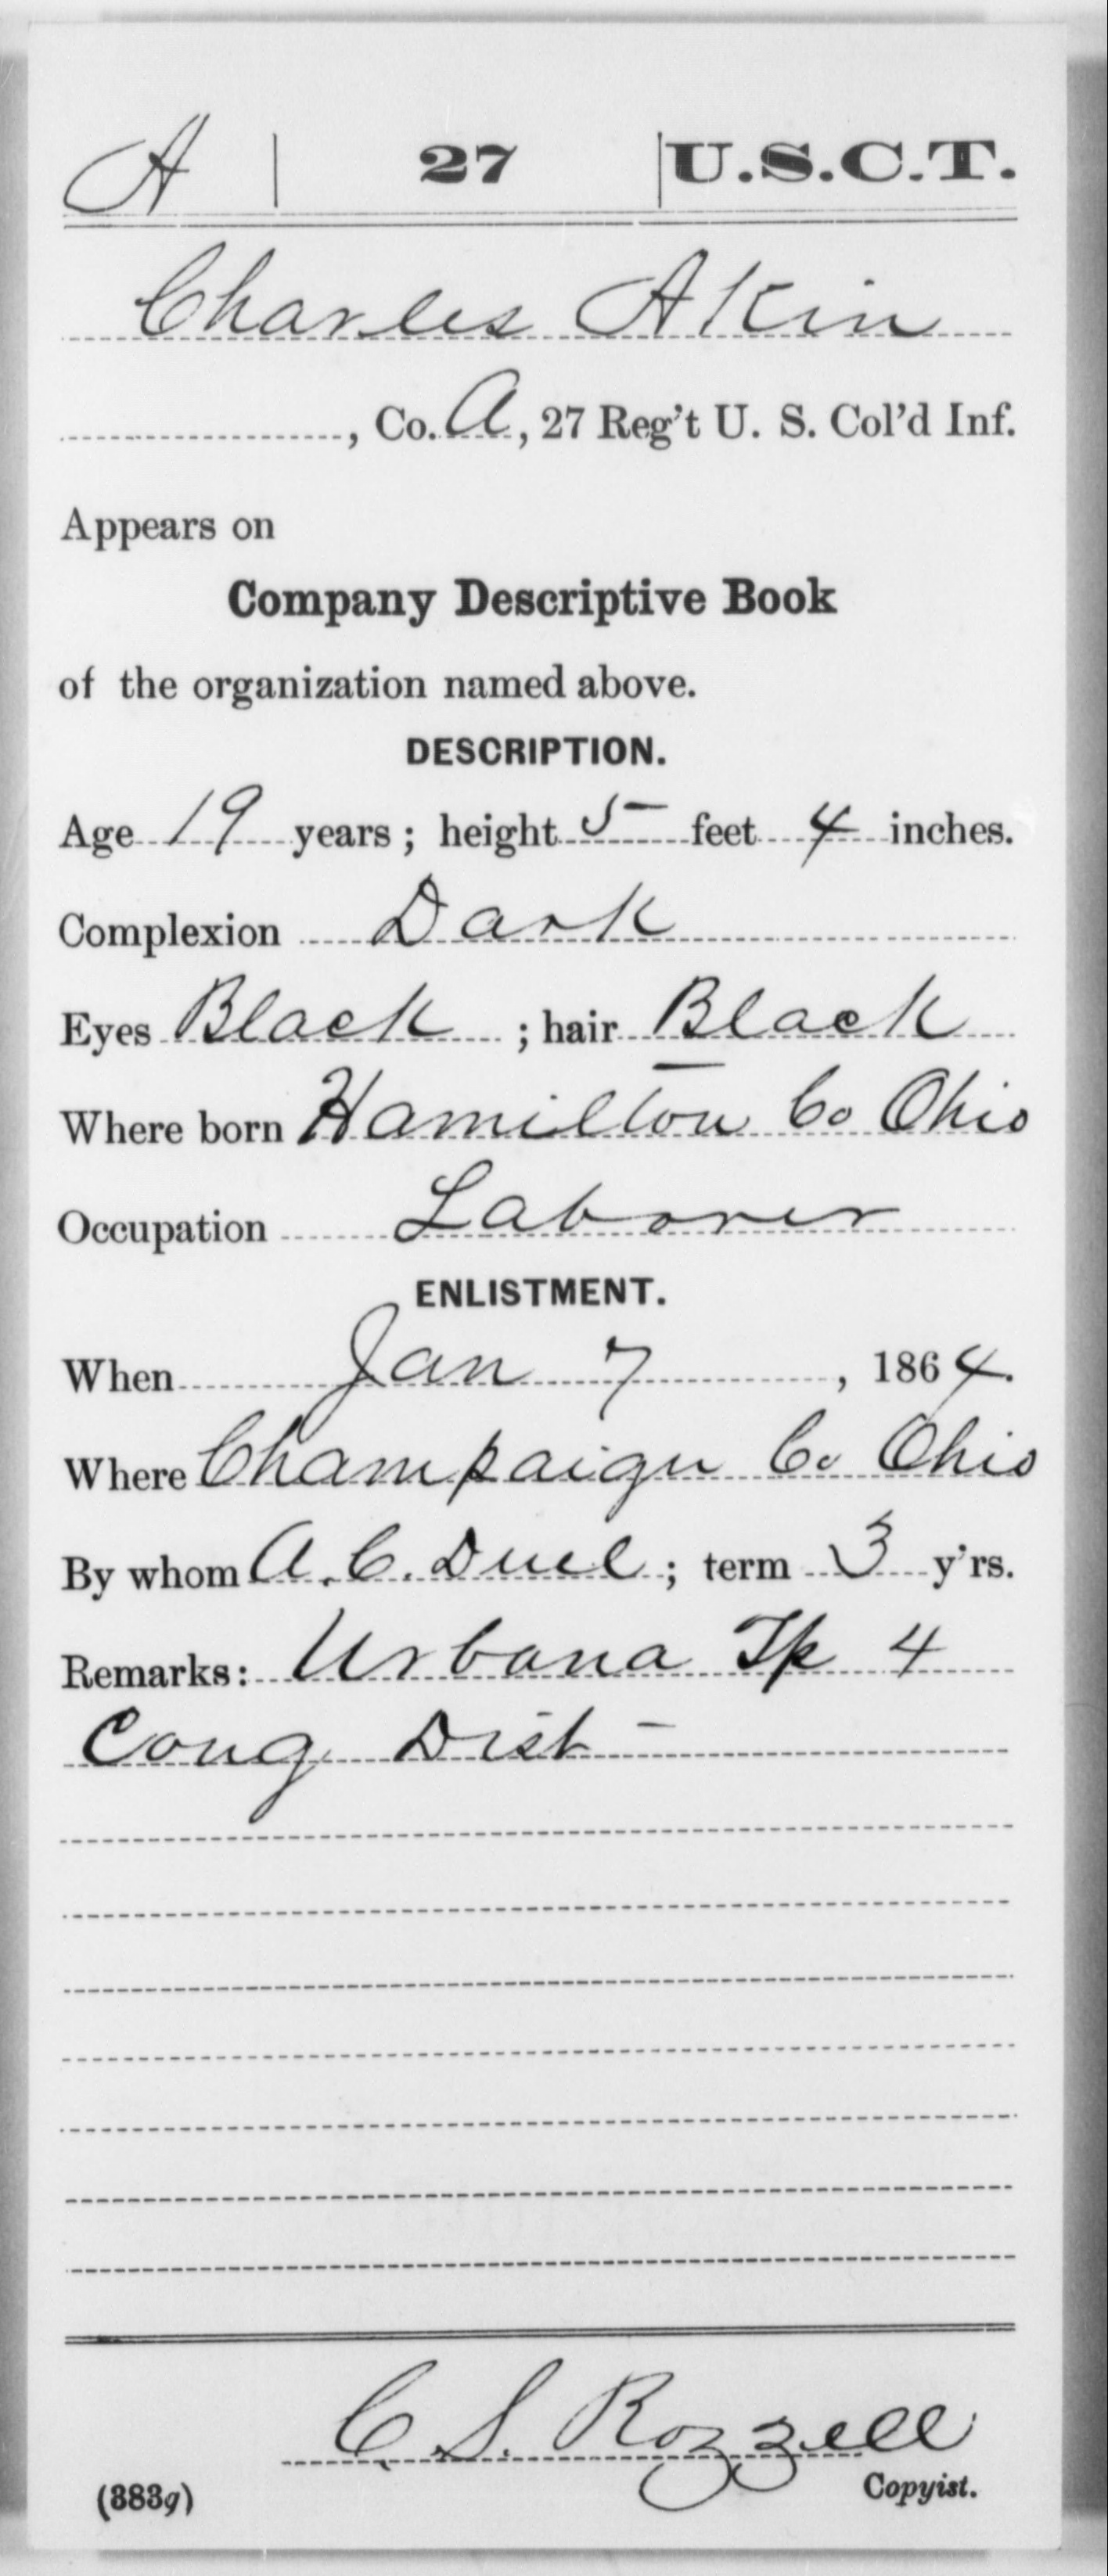 A | 27 | U.S.C.T.
Charles Akin
, Co. A, 27 Reg't U. S. Col'd Inf.
Appears on
Company Descriptive Book
of the organization named above.
DESCRIPTION.
Age 19 years; height 5 feet 4 inches.
Complexion Dark
Eyes Black; hair Black
Where born Hamilton Co Ohio
Occupation Laborer
ENLISTMENT.
When Jan 7, 1864.
Where Champaign Co Ohio
By whom A. C. Duel; term 3 y'rs.
Remarks: Urbana Tp 4
Cong Dist -
C S. Rozzell
(383g) Copyist.